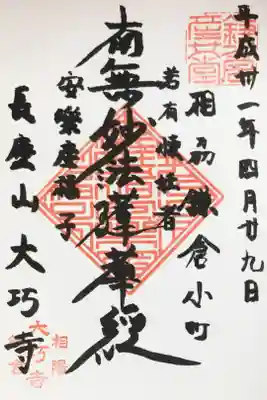 平成卅一年四月廿九日
相刕鎌倉小町
若有懐妊者
南無妙法蓮華經
安樂産福子
長慶山 大巧寺
相陽
大巧寺